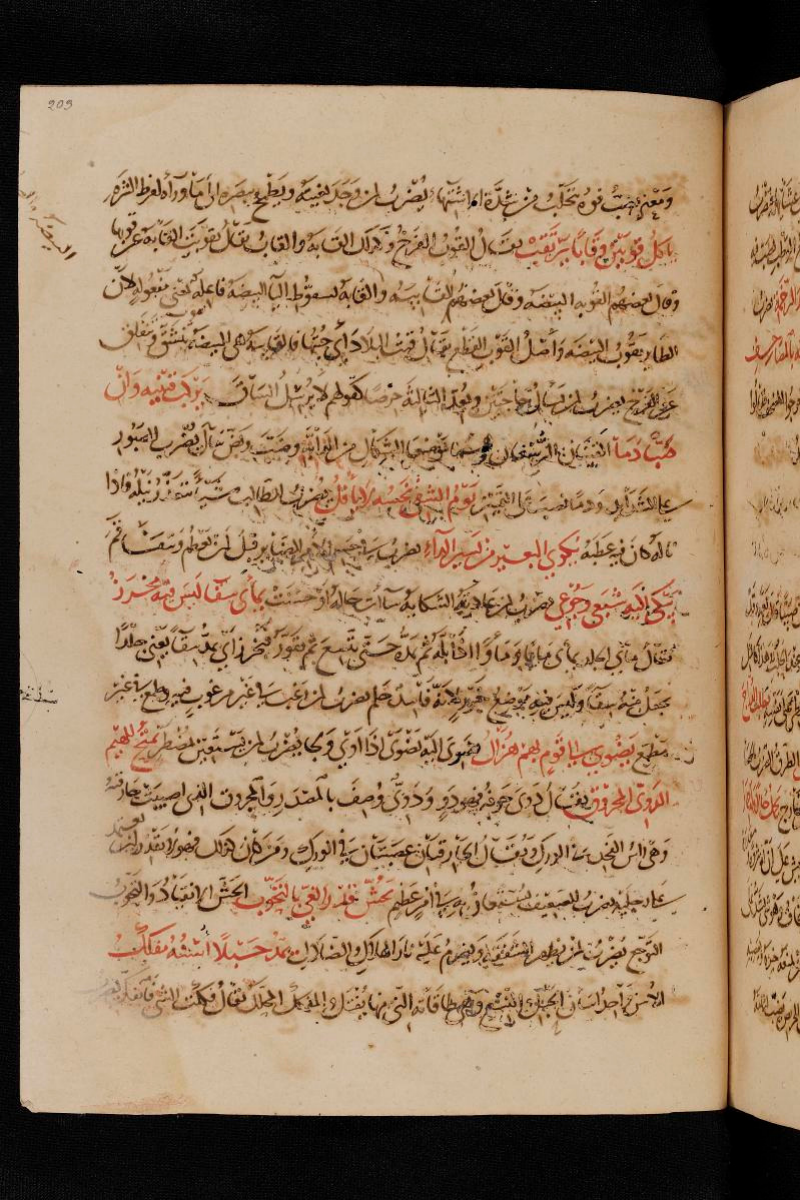 209
ومعنى يضب فوه يتحلب من شدة اشتهائه يضرب لمن وجد بغيته ويطمح ببصره الى ما وراه لفرط الشره
ياكل قوبين وقابا يرتقب يقال القوب الفرخ وكذلك القابة والقاب يقال تقوبت القابة عن قوبها
وقال بعضهم القوبة البيضة وقال بعضهم القابية والقابة لسقوط اليا البيضة فاعلة بمعنى مفعولة لان
الطاير يقوب البيضة واصل القوب الحفر يقال قبت البلاد اي جبتها فالقابية هي البيضة تنشق وتنفلق
عن الفرخ يضرب لمن يسال حاجتين ويعد الثالثة حرصا كقولهم لا يرسل الساق يركب قينيه وان
ضبا دما القينان الرسغان وهما موضعا الشكال من الدابة وضب وبض سال يضرب للصبور
على الشدايد ودما نصب على التمييز يوم الشقي نحسه لا يأفل يضرب للطالب شيا تتعذر نيله واذا
ناله كان فيه عطبه يكوي البعير من يسير الداء يضرب في حسم الامر الضاير قبل ان يعظم ويتفاقم
يبكي اليه شبعي وجوعي يضرب لمن عادته الشكاية سآت حاله او حسنت يمأى سقا ليس فيه مخرز
يقال مأى الجلد يمأى مايا ومأوا اذا بله ثم مده حتى يتسع ثم يقور فيخرز اي يمد سقا يعني جلدا
يجعل منه سقا وليس فيه موضع خرز لانه فاسد حلم يضرب لمن رغب في غير مرغوب فيه وطمع في غير
مطمع يضوي الى قوم بهم هزال ضوى اليه يضوى اذا اوى ولجا يضرب لمن يستعين بمضطر يمتح للهيم
الدوي المحروق يقال دوي جوفه فهو دو ودوى وصف بالمصدر والمحروق الذي اصيبت حارقته
وهي راس الفخذ في الورك ويقال الحارقتان عصبتان في الورك ومن كان كذلك فهو لا يقدر ان يعتمد
على رجليه يضرب للضعيف يستعان به في امر عظيم يحش قدر الغي بالتحوب الحش الايقاد والتحوب
التوجع يضرب لمن يظهر الشفقة ويضرم عليه نار الهلاك والضلال يمد حبلا اسنه مفكك
الاسن واحد اسان الحبل والنسع وهي طاقاته التي منها يفتل والمفكك المحلل يقال فككت الشي فانفك يضرب